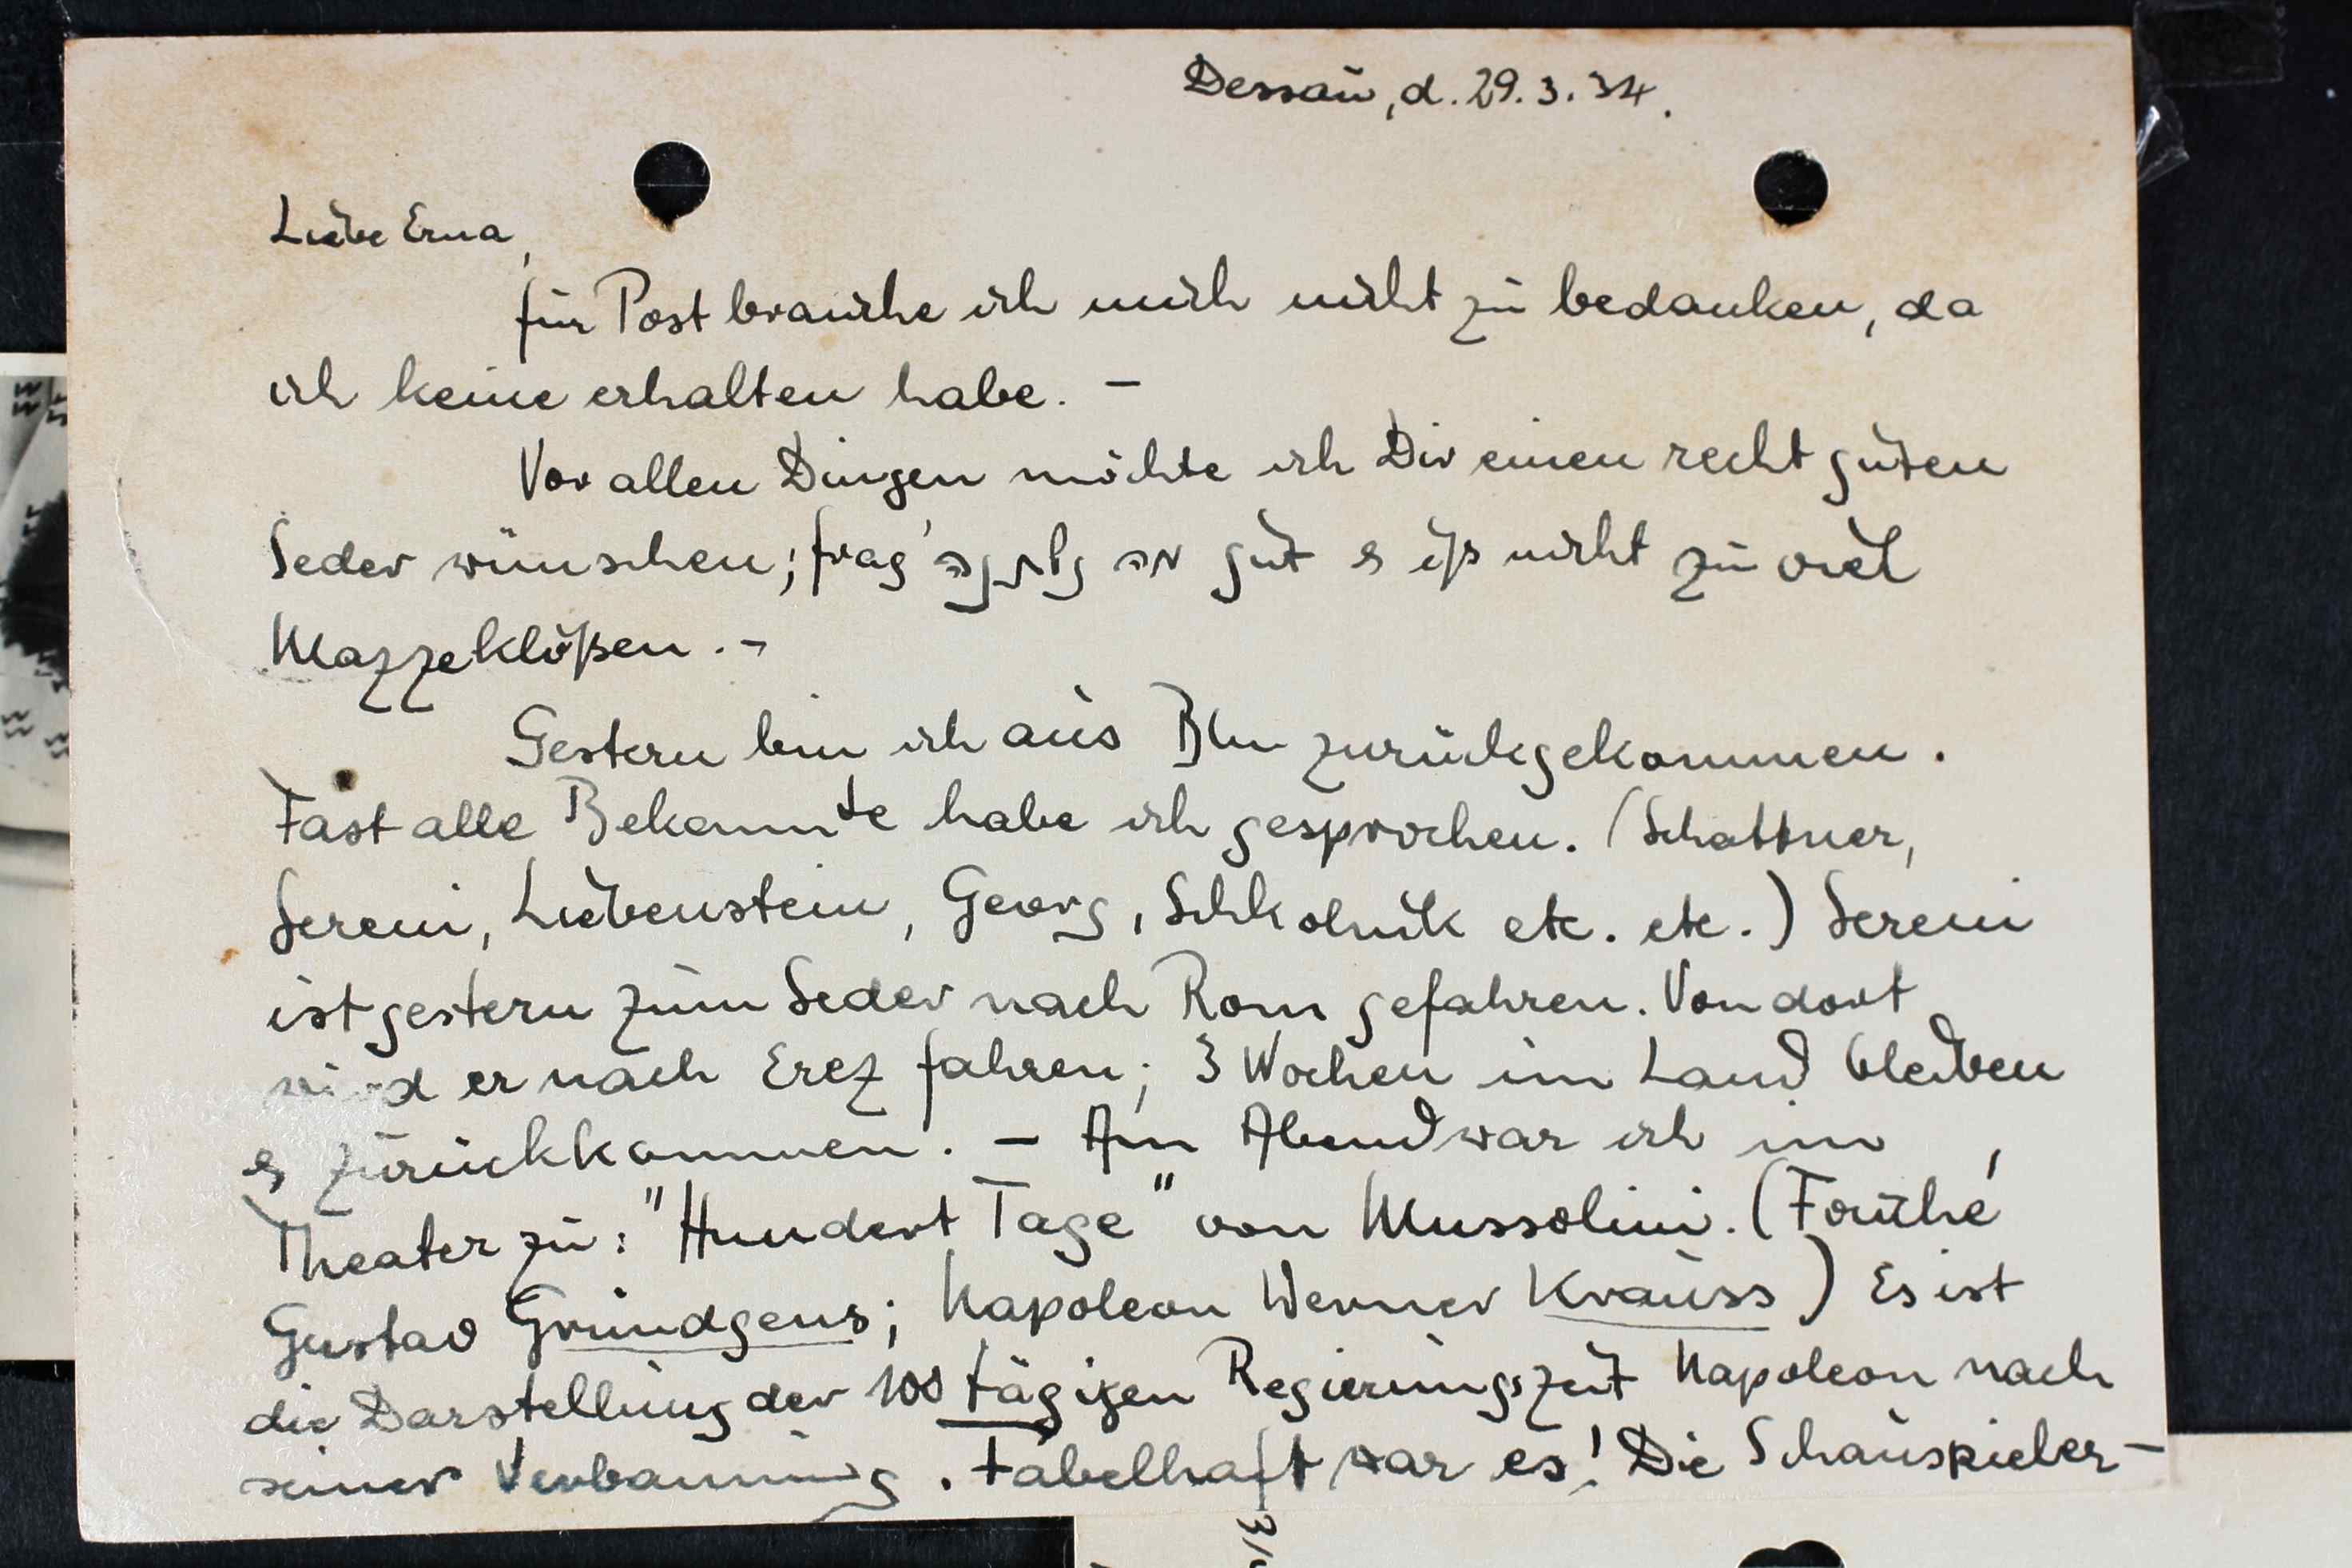 Dessau, d. 29. 3. 34.
Liebe Erna,
für Post brauche ich mich nicht zu bedanken, da
ich keine erhalten habe. –
Vor allen Dingen möchte ich Dir einen recht guten
Seder wünschen; frag' מה נשתנה gut & iß nicht zu viel
Mazzeklößen. –
Gestern bin ich aus Bln zurückgekommen.
Fast alle Bekannte habe ich gesprochen. (Schattner,
Sereni, Liebenstein, Georg, Schkolnik etc. etc.) Sereni
ist gestern zum Seder nach Rom gefahren. Von dort
wird er nach Erez fahren; 3 Wochen im Land bleiben
& zurückkommen. – Am Abend war ich im
Theater zu: "Hundert Tage" von Mussolini. (Fouché
Gustav Gründgens; Napoleon Werner Krauss) Es ist
die Darstellung der 100 tägigen Regierungszeit Napoleon nach
seiner Verbannung. Fabelhaft war es! Die Schauspieler–